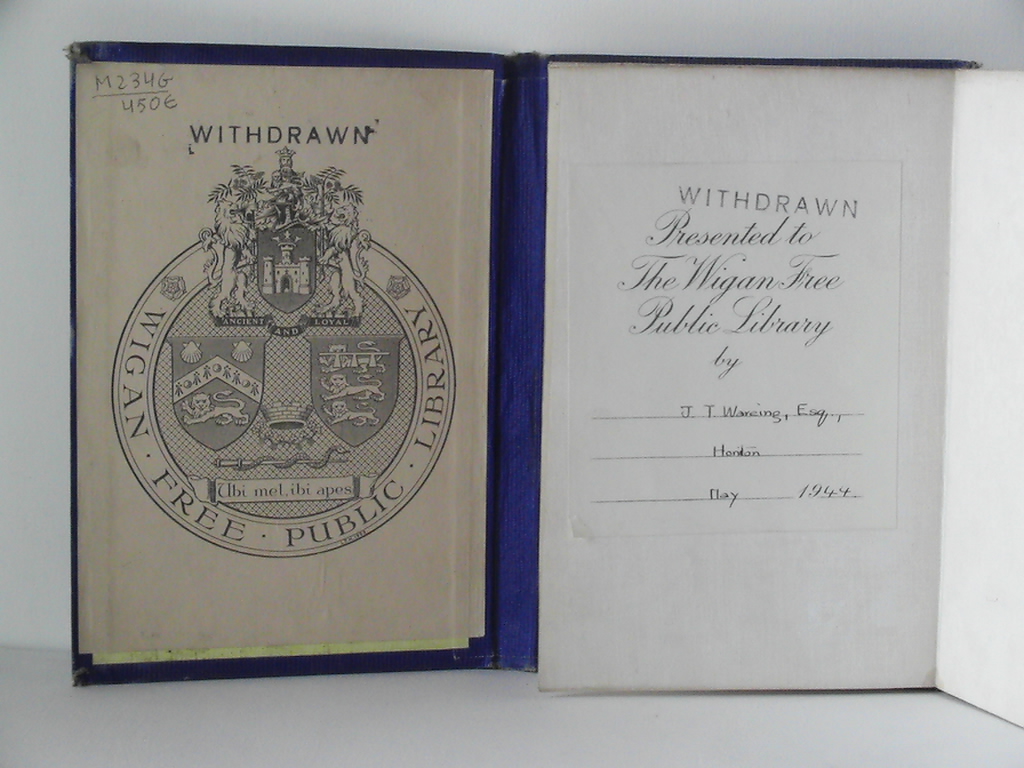 M234G
450E
WITHDRAWN
ANCIENT AND LOYAL
WIGAN · FREE · PUBLIC · LIBRARY
Ubi mel, ibi apes
WITHDRAWN
Presented to
The Wigan Free
Public Library
by
J. T. Wareing, Esq.,
Horton
May 1944.